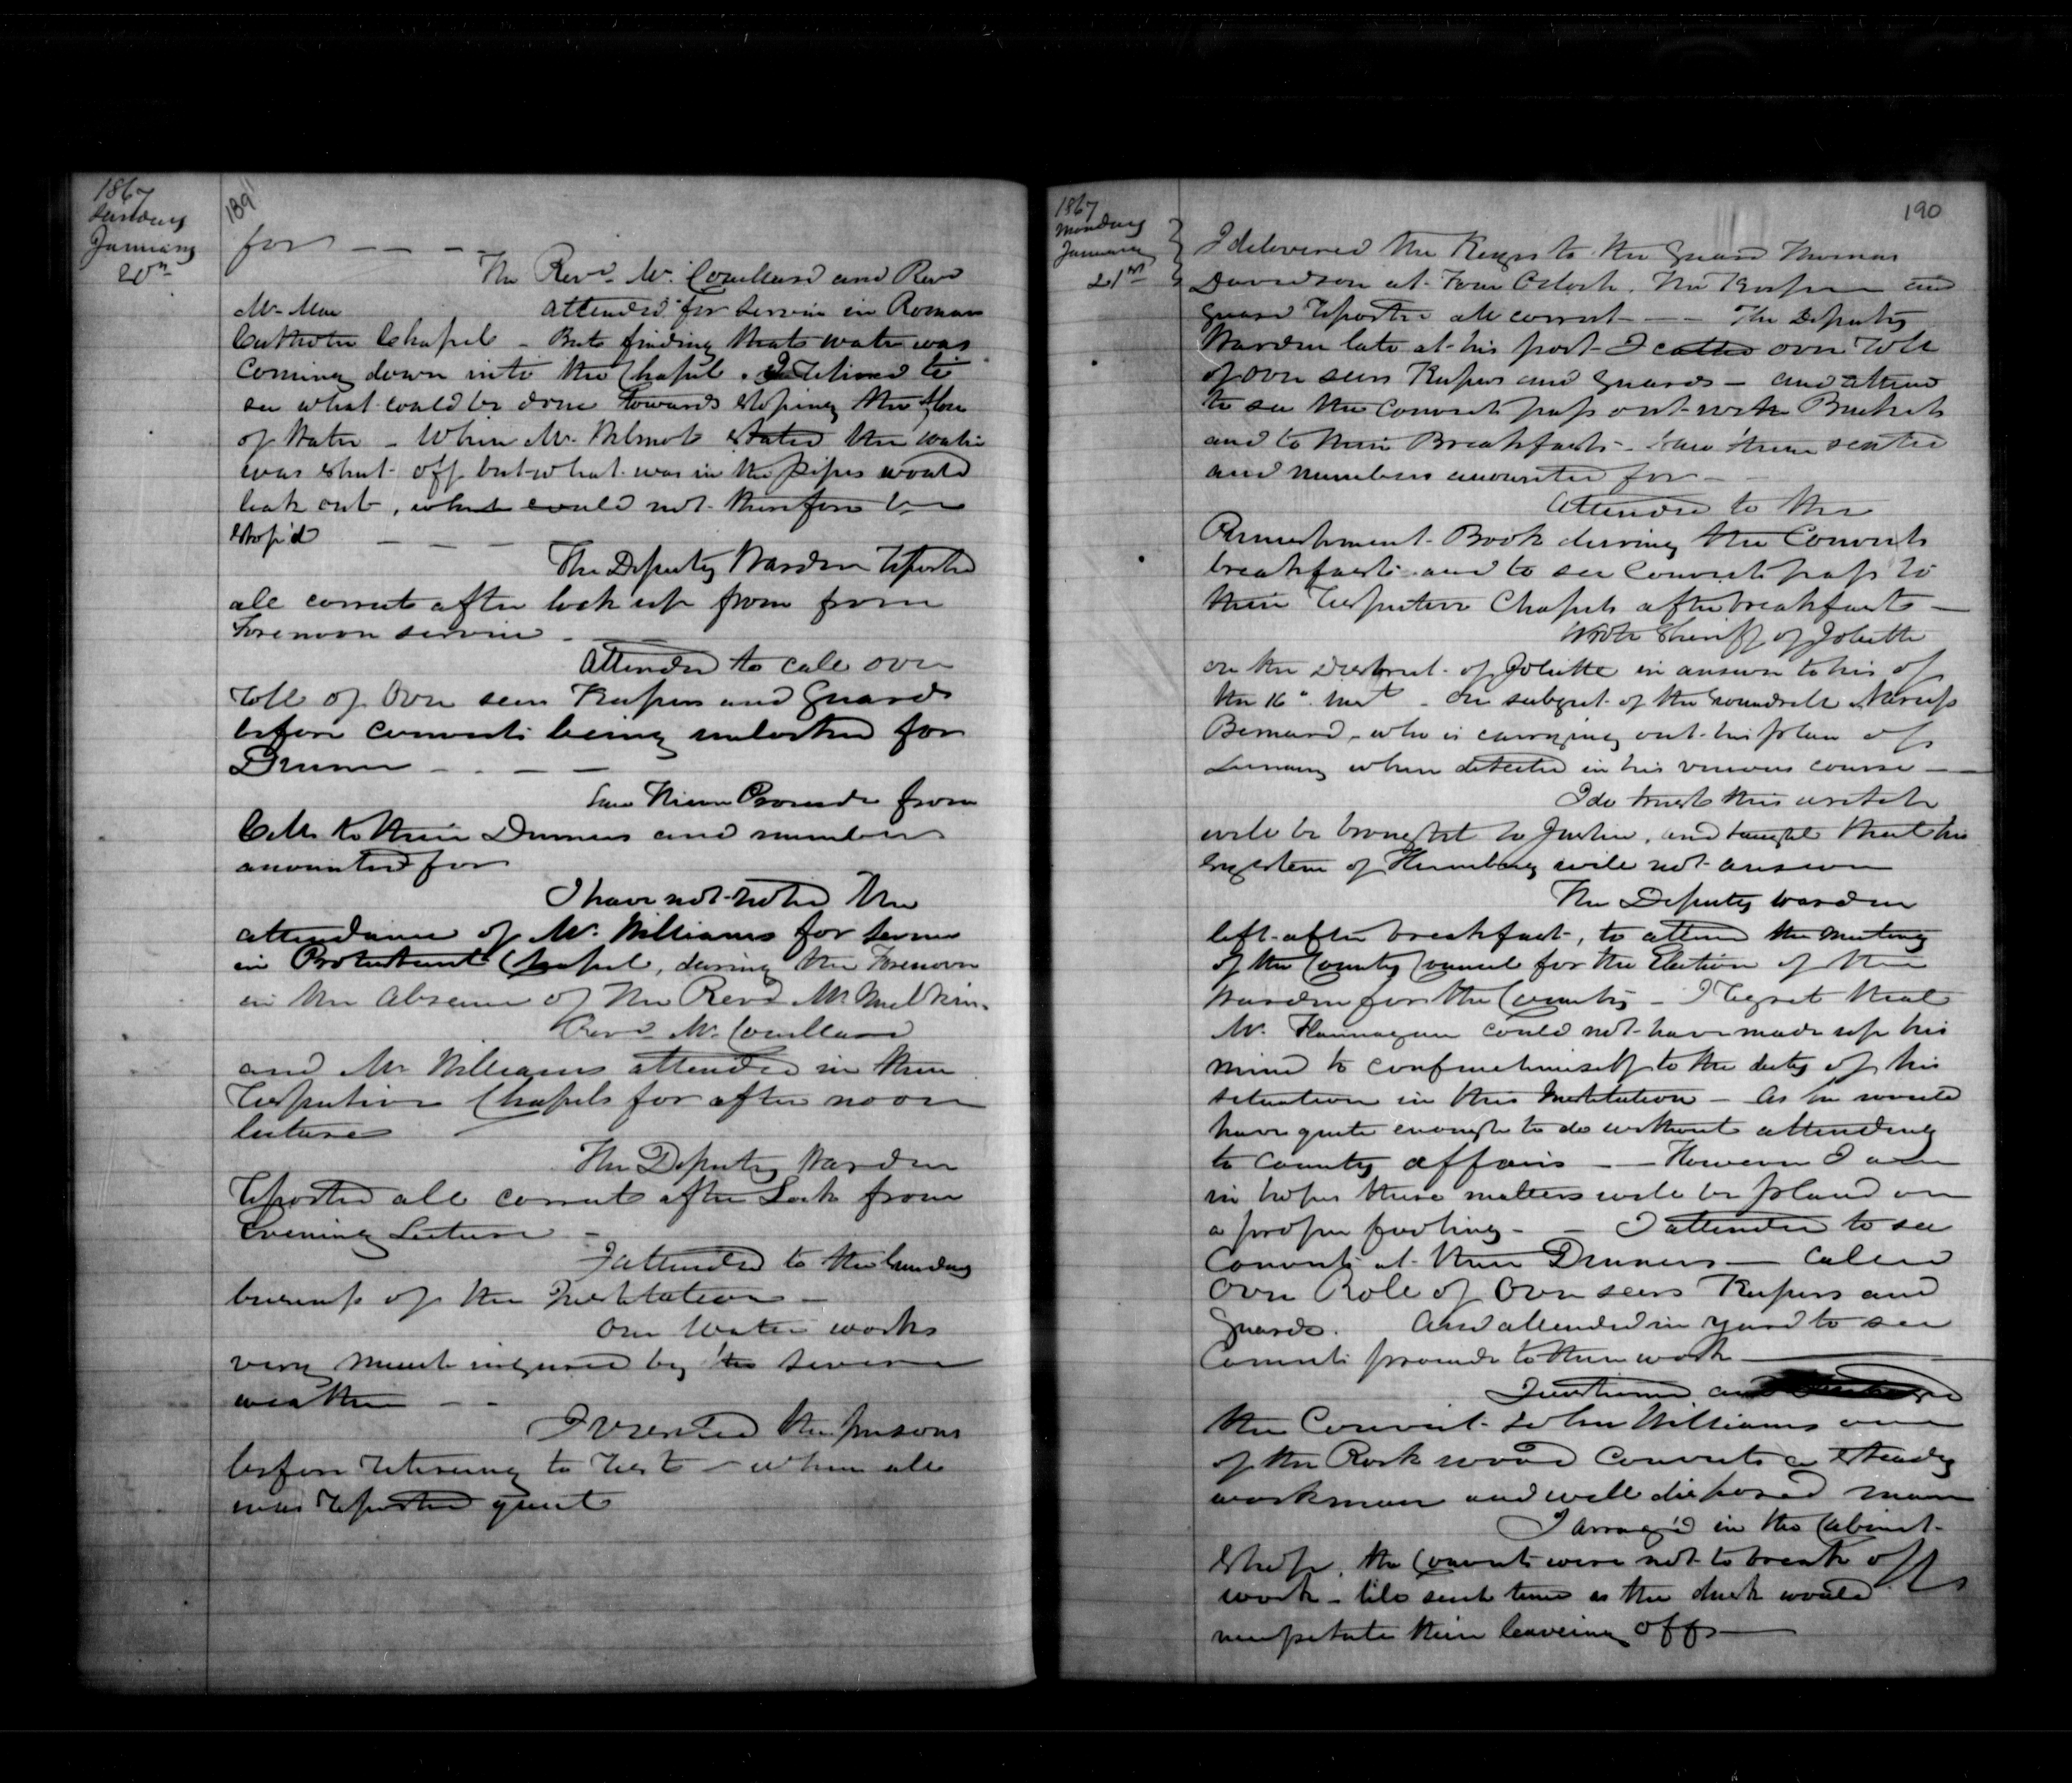 1867
Sunday
January
20th
189
for — — —
The Revd. Mr. Couillard and Revd
Mr. attended for service in Roman
Catholic Chapel – But finding that water was
coming down into the Chapel. I retired to
see what could be done towards stoping the flow
of water – When Mr. Wilmot stated the water
was shut off but what was in the pipes would
leak out, which could not therefore be
stop'd — — —
The Deputy Warden reported
all correct after lock up from from
Forenoon service –
Attended to call over
roll of Over seers Keepers and Guards
before convicts being unlocked for
Dinner — – — —
Saw them Proceede from
Cells to their Dinners and numbers
accounted for
I have not noted the
attendance of Mr. Williams for service
in Protestant Chapel, during the Forenoon
in the absence of the Revd Mr.
Revd Mr. Couillard
and Mr Williams attended in their
respective Chapels for after noon
lecture
The Deputy Warden
reported all correct after Lock from
Evening Lecture –
I attended to the Sunday
business of the Institution –
Our Water works
very much injured by the severe
weather – –
I visited the prisons
before retireing to rest – when all
was reported quiet
1867
Monday
January
21st
190
I delivered the Keys to the Guard Thomas
Davidson at Four Oclock. The Keeper and
Guard reported all correct — – The Deputy
Warden late at his post – I called over roll
of over seers Keepers and Guards – and attend
to see the convicts pass out with Buckets
and to their Breakfasts – saw them seated
and numbers accounted for – –
Attended to the
Punishment Book during the Convicts
breakfasts and to see Convicts pass to
their respective Chapels after breakfasts –
Wrote Sheriff of Joliette
on the District of Joliette in answer to his of
the 16" Inst – on subject of the scoundrell Narciss
Bernard, who is carrying out his plan of
Lunacy when detected in his vicious course –
I do trust this wretch
will be brought to Justice, and taught that his
system of Humbug will not answer
The Deputy Warden
left after breakfast, to attend the meeting
of the County Council for the Election of the
Warden for the County – I regret that
Mr. Flannagan could not have made up his
mind to confine himself to the duty of his
situation in this Institution – As he would
have quite enough to do without attending
to County affairs – – However I am
in hopes these matters will be placed on
a proper footing – – I attended to see
Convicts at their Dinners – called
over Role of Over seers Keepers and
Guards. And attended in yard to see
Convicts proceede to their work –
the Convict John Williams one
of the Rock wood Convicts a steady
workman and well disposed man
I arrang'd in the Cabinet
Shop, the Convicts were not to break off
work – till such time as the dark would
necessitate their leaveing off –